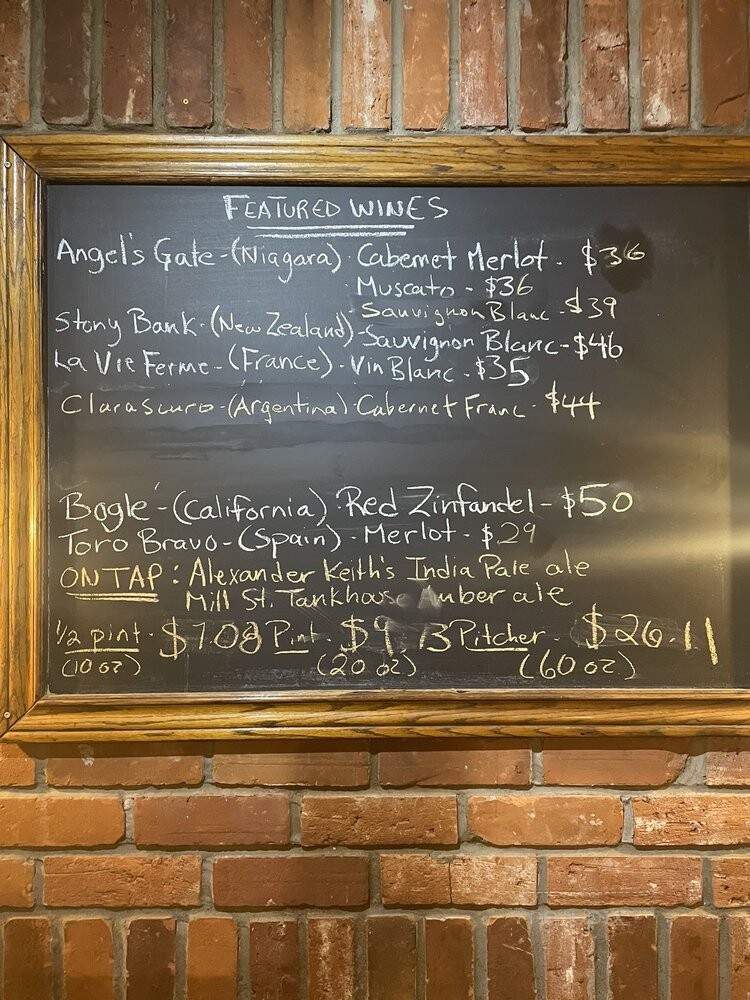 FEATURED WINES
Angel's Gate - (Niagara) · Cabernet Merlot - $36
· Muscato - $36
· Sauvignon Blanc - $39
Stony Bank · (New Zealand) - Sauvignon Blanc - $46
La Vie Ferme - (France) · Vin Blanc - $35
Clarascuro - (Argentina) · Cabernet Franc - $44
Bogle - (California) · Red Zinfandel - $50
Toro Bravo - (Spain) · Merlot - $29
ON TAP : Alexander Keith's India Pale ale
Mill St. Tankhouse Amber ale
1/2 pint · $7.08 Pint · $9.13 Pitcher - $26.11
(10 oz) (20 oz) (60 oz)